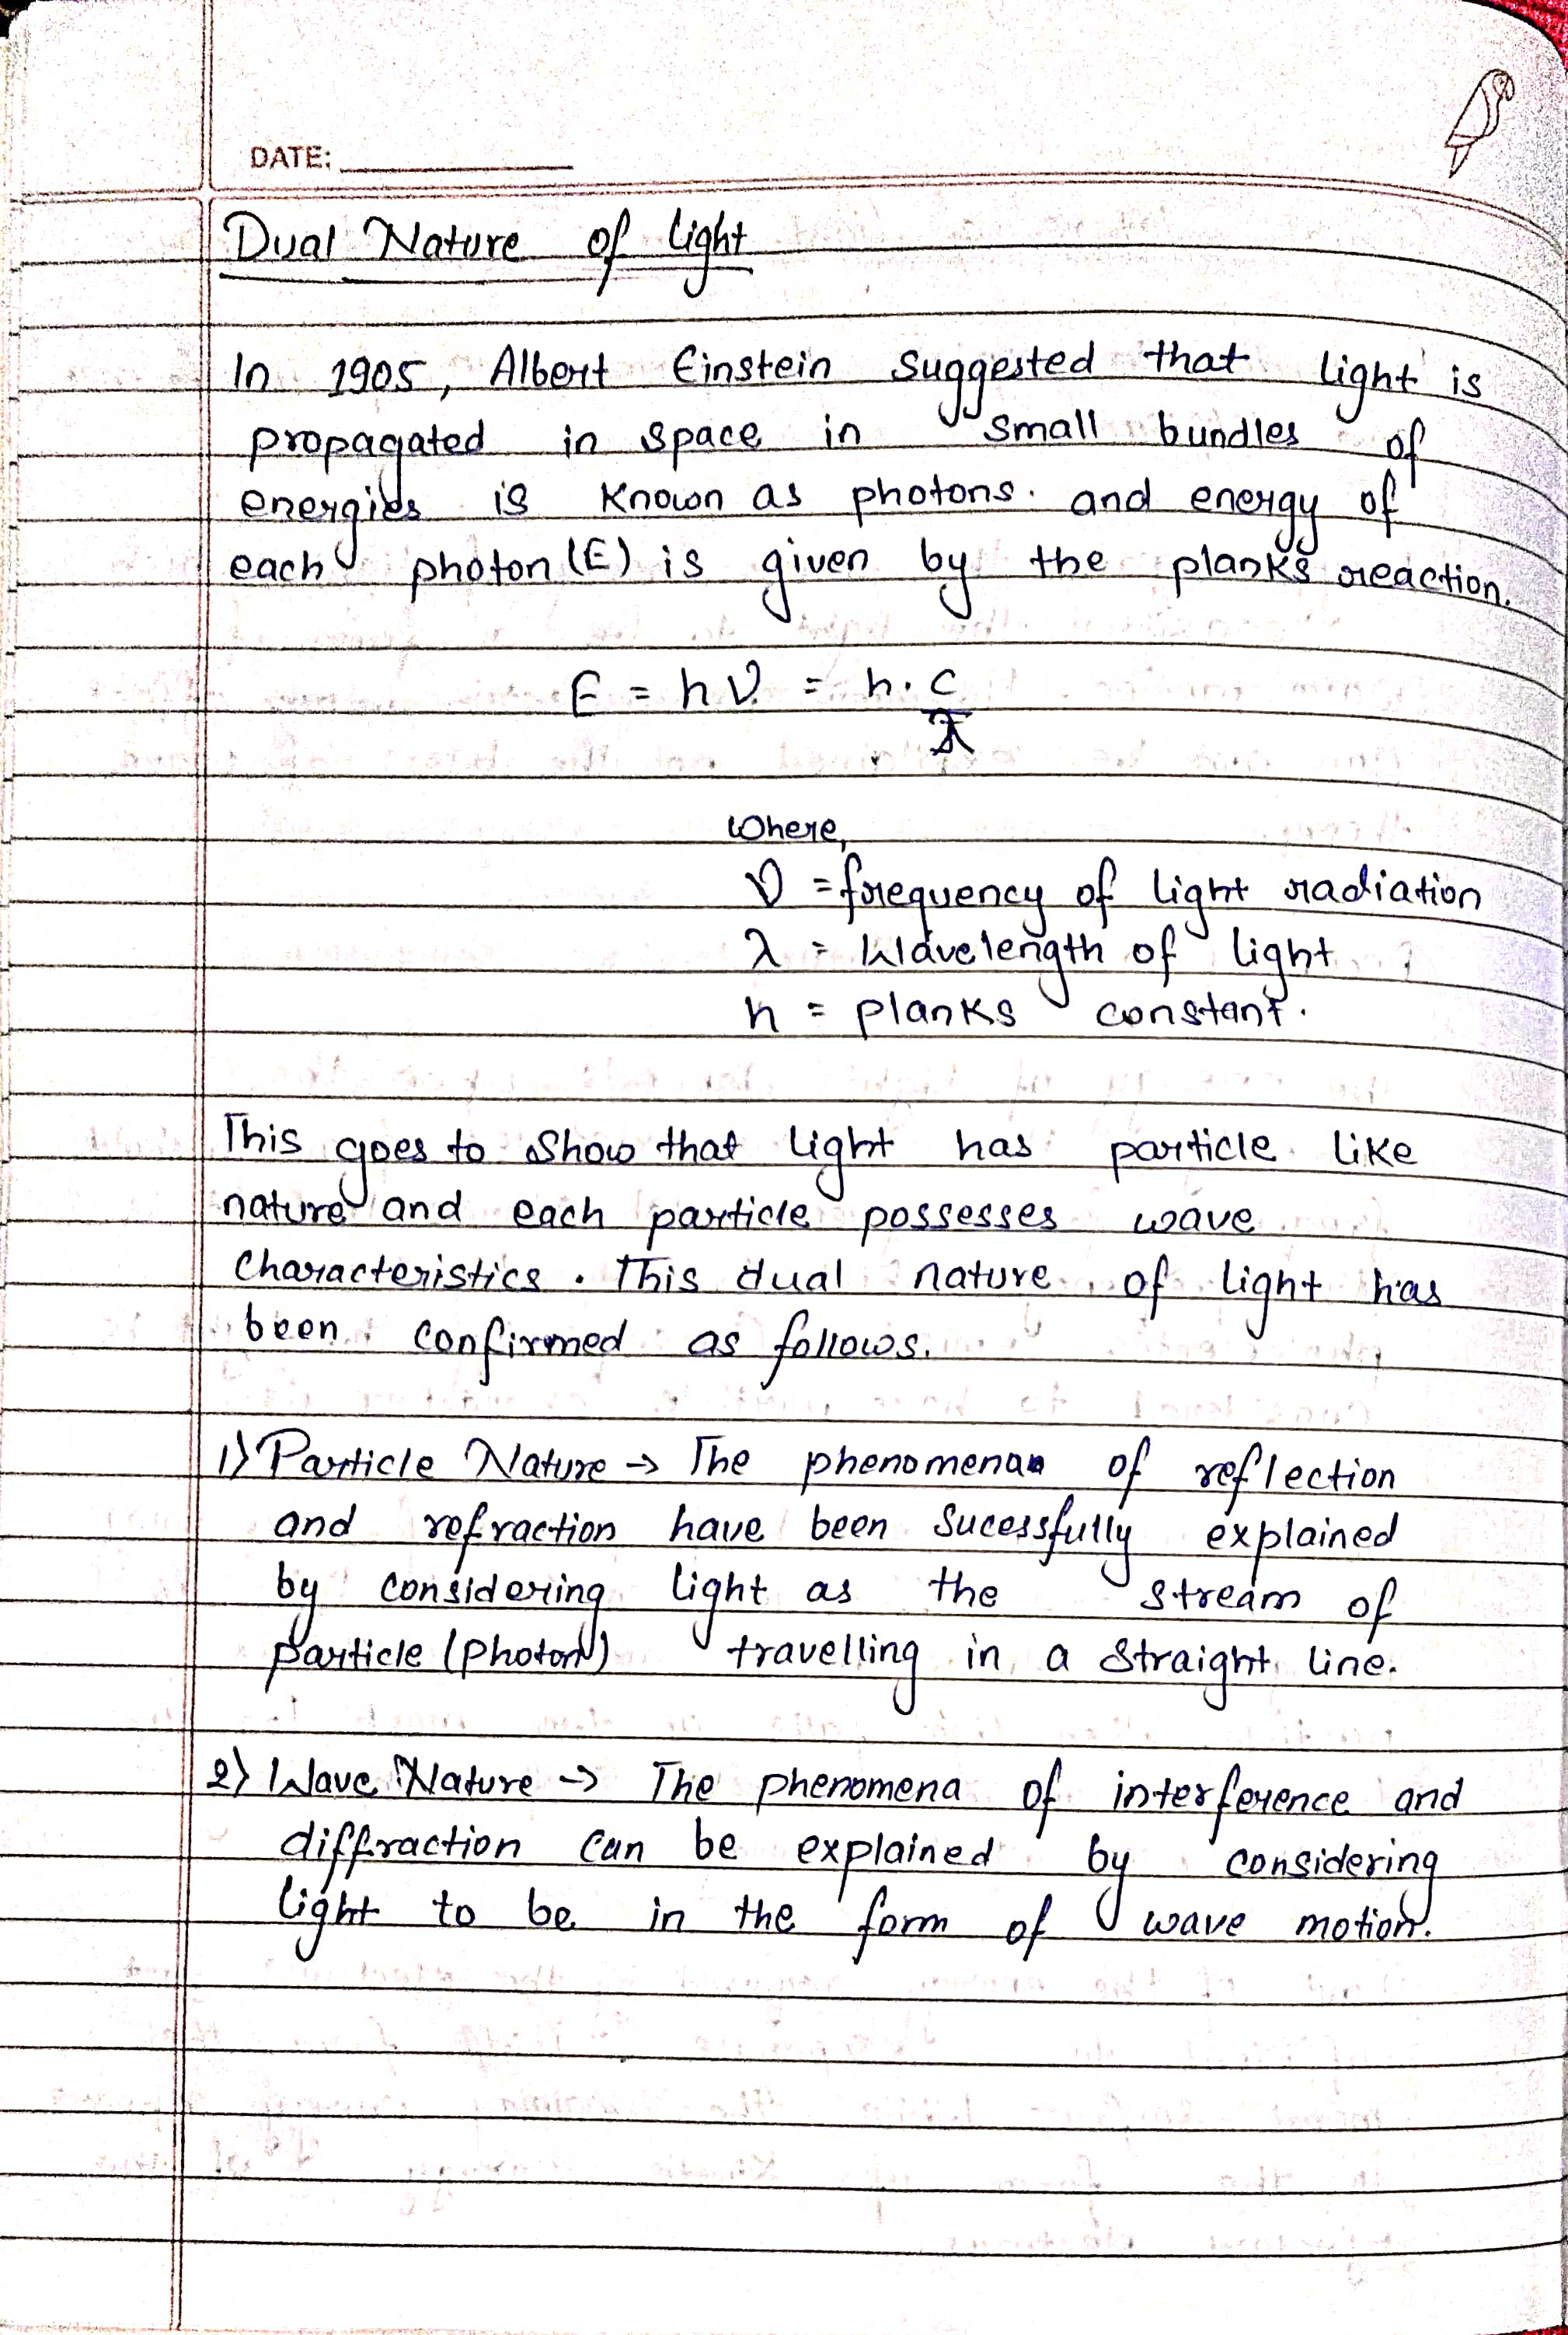 DATE:
Dual Nature of light
In 1905, Albert Einstein suggested that light is
propagated in space in small bundles of
energies is known as photons. and energy of
each photon (E) is given by the planks reaction.
E = hν = h. c
λ
Where,
ν = frequency of light radiation
λ = Wavelength of light
h = planks constant.
This goes to show that light has particle like
nature and each particle possesses wave
Characteristics. This dual nature of light has
been confirmed as follows.
1) Particle Nature → The phenomena of reflection
and refraction have been Sucessfully explained
by considering light as the stream of
particle (photon) travelling in a straight line.
2) Wave Nature → The phenomena of interference and
diffraction can be explained by considering
light to be in the form of wave motion.